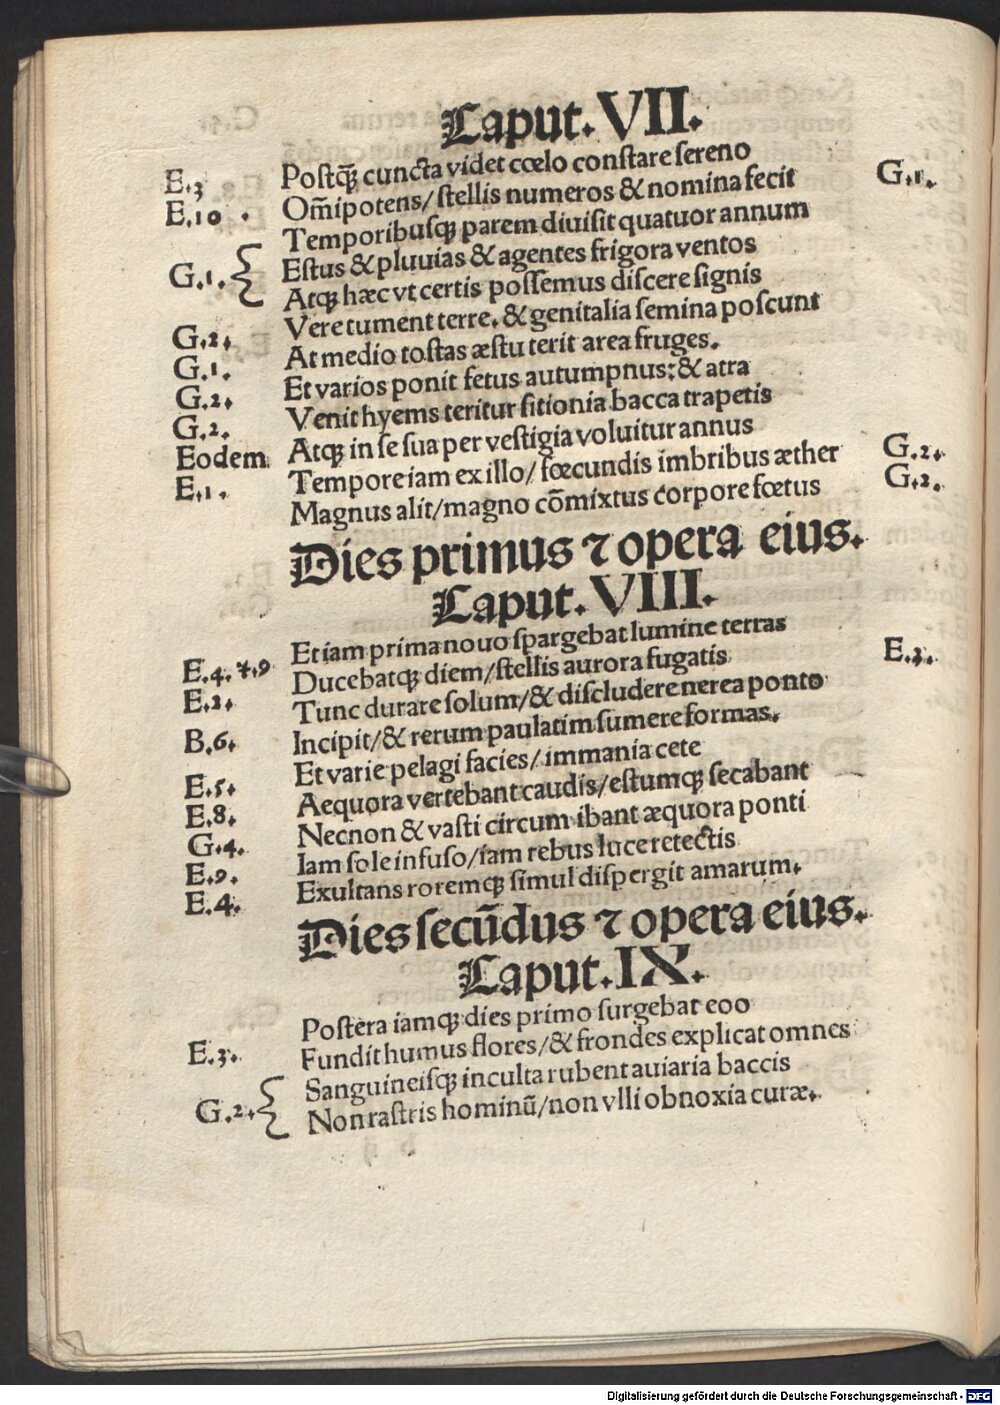 Caput. VII.
E.3 Postq̃ cuncta videt cœlo constare sereno
E.10. Om̃ipotens/ stellis numeros & nomina fecit G.1.
Temporibusq; parem diuisit quatuor annum
G.1. { Estus & pluuias & agentes frigora ventos
Atq; hæc vt certis possemus discere signis
G.2. Vere tument terre. & genitalia semina poscunt
G.1. At medio tostas æstu terit area fruges.
G.2. Et varios ponit fetus autumpnus: & atra
G.2. Venit hyems teritur sitionia bacca trapetis
Eodem Atq; in se sua per vestigia voluitur annus
E.1. Tempore iam ex illo/ fœcundis imbribus æther G.2.
Magnus alit/ magno cõmixtus corpore fœtus G.2.
Dies primus ⁊ opera eius.
Caput. VIII.
Et iam prima nouo spargebat lumine terras
E.4. ⁊.9 Ducebatq; diem/ stellis aurora fugatis E.3.
E.2. Tunc durare solum/ & discludere nerea ponto
B.6. Incipit/ & rerum paulatim sumere formas.
Et varie pelagi facies/ immania cete
E.5. Aequora vertebant caudis/ estumq; secabant
E.8. Necnon & vasti circum ibant æquora ponti
G.4. Iam sole infuso/ iam rebus luce retectis
E.9. Exultans roremq; simul dispergit amarum.
E.4.
Dies secũdus ⁊ opera eius.
Caput. IX.
Postera iamq; dies primo surgebat eoo
E.3. Fundit humus flores/ & frondes explicat omnes
G.2. { Sanguineisq; inculta rubent auiaria baccis
Non rastris hominũ/ non vlli obnoxia curæ.
Digitalisierung gefördert durch die Deutsche Forschungsgemeinschaft - DFG